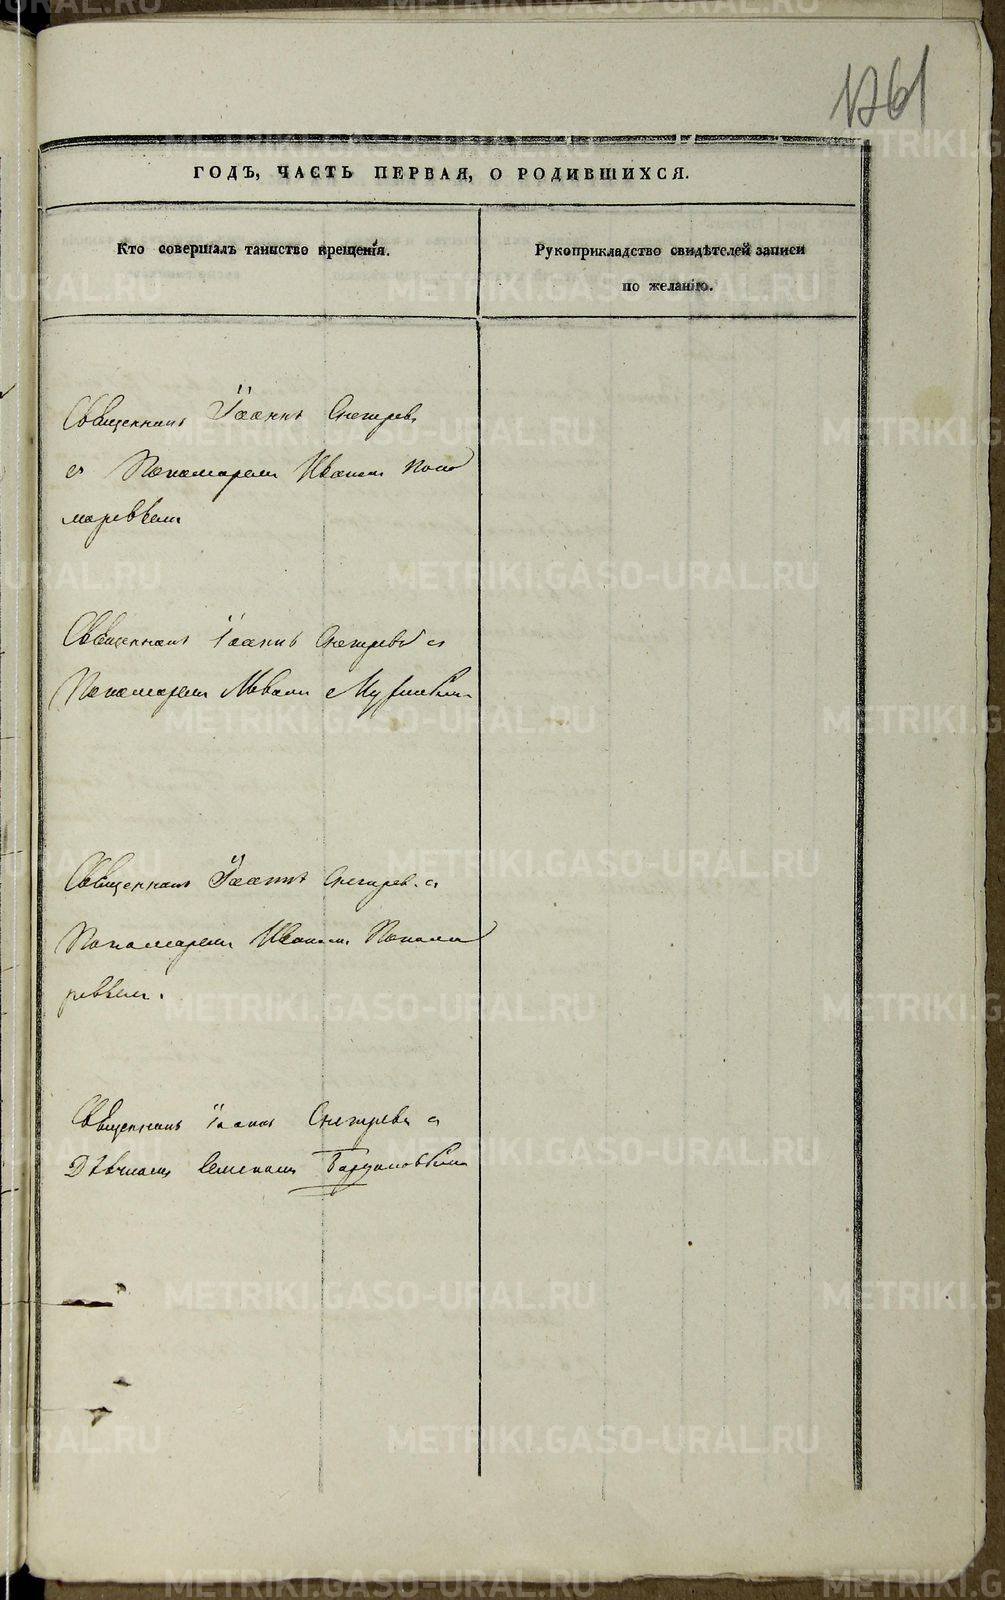 1761
ГОДЪ, ЧАСТЬ ПЕРВАЯ, О РОДИВШИХСЯ.
Кто совершалъ таинство крещенія.
Рукоприкладство свидѣтелей записи
по желанію.
Священникъ Іоаннъ Снегирев
съ Пономаремъ Иваномъ Поно
маревымъ
Священникъ Іоаннъ Снегиревъ съ
Пономаремъ
Священникъ Іоаннъ Снегирев съ
Пономаремъ Иваномъ Понома
ревымъ.
Священникъ Іоаннъ Снегиревъ съ
Дьячкомъ Семеномъ
METRIKI.GASO-URAL.RU